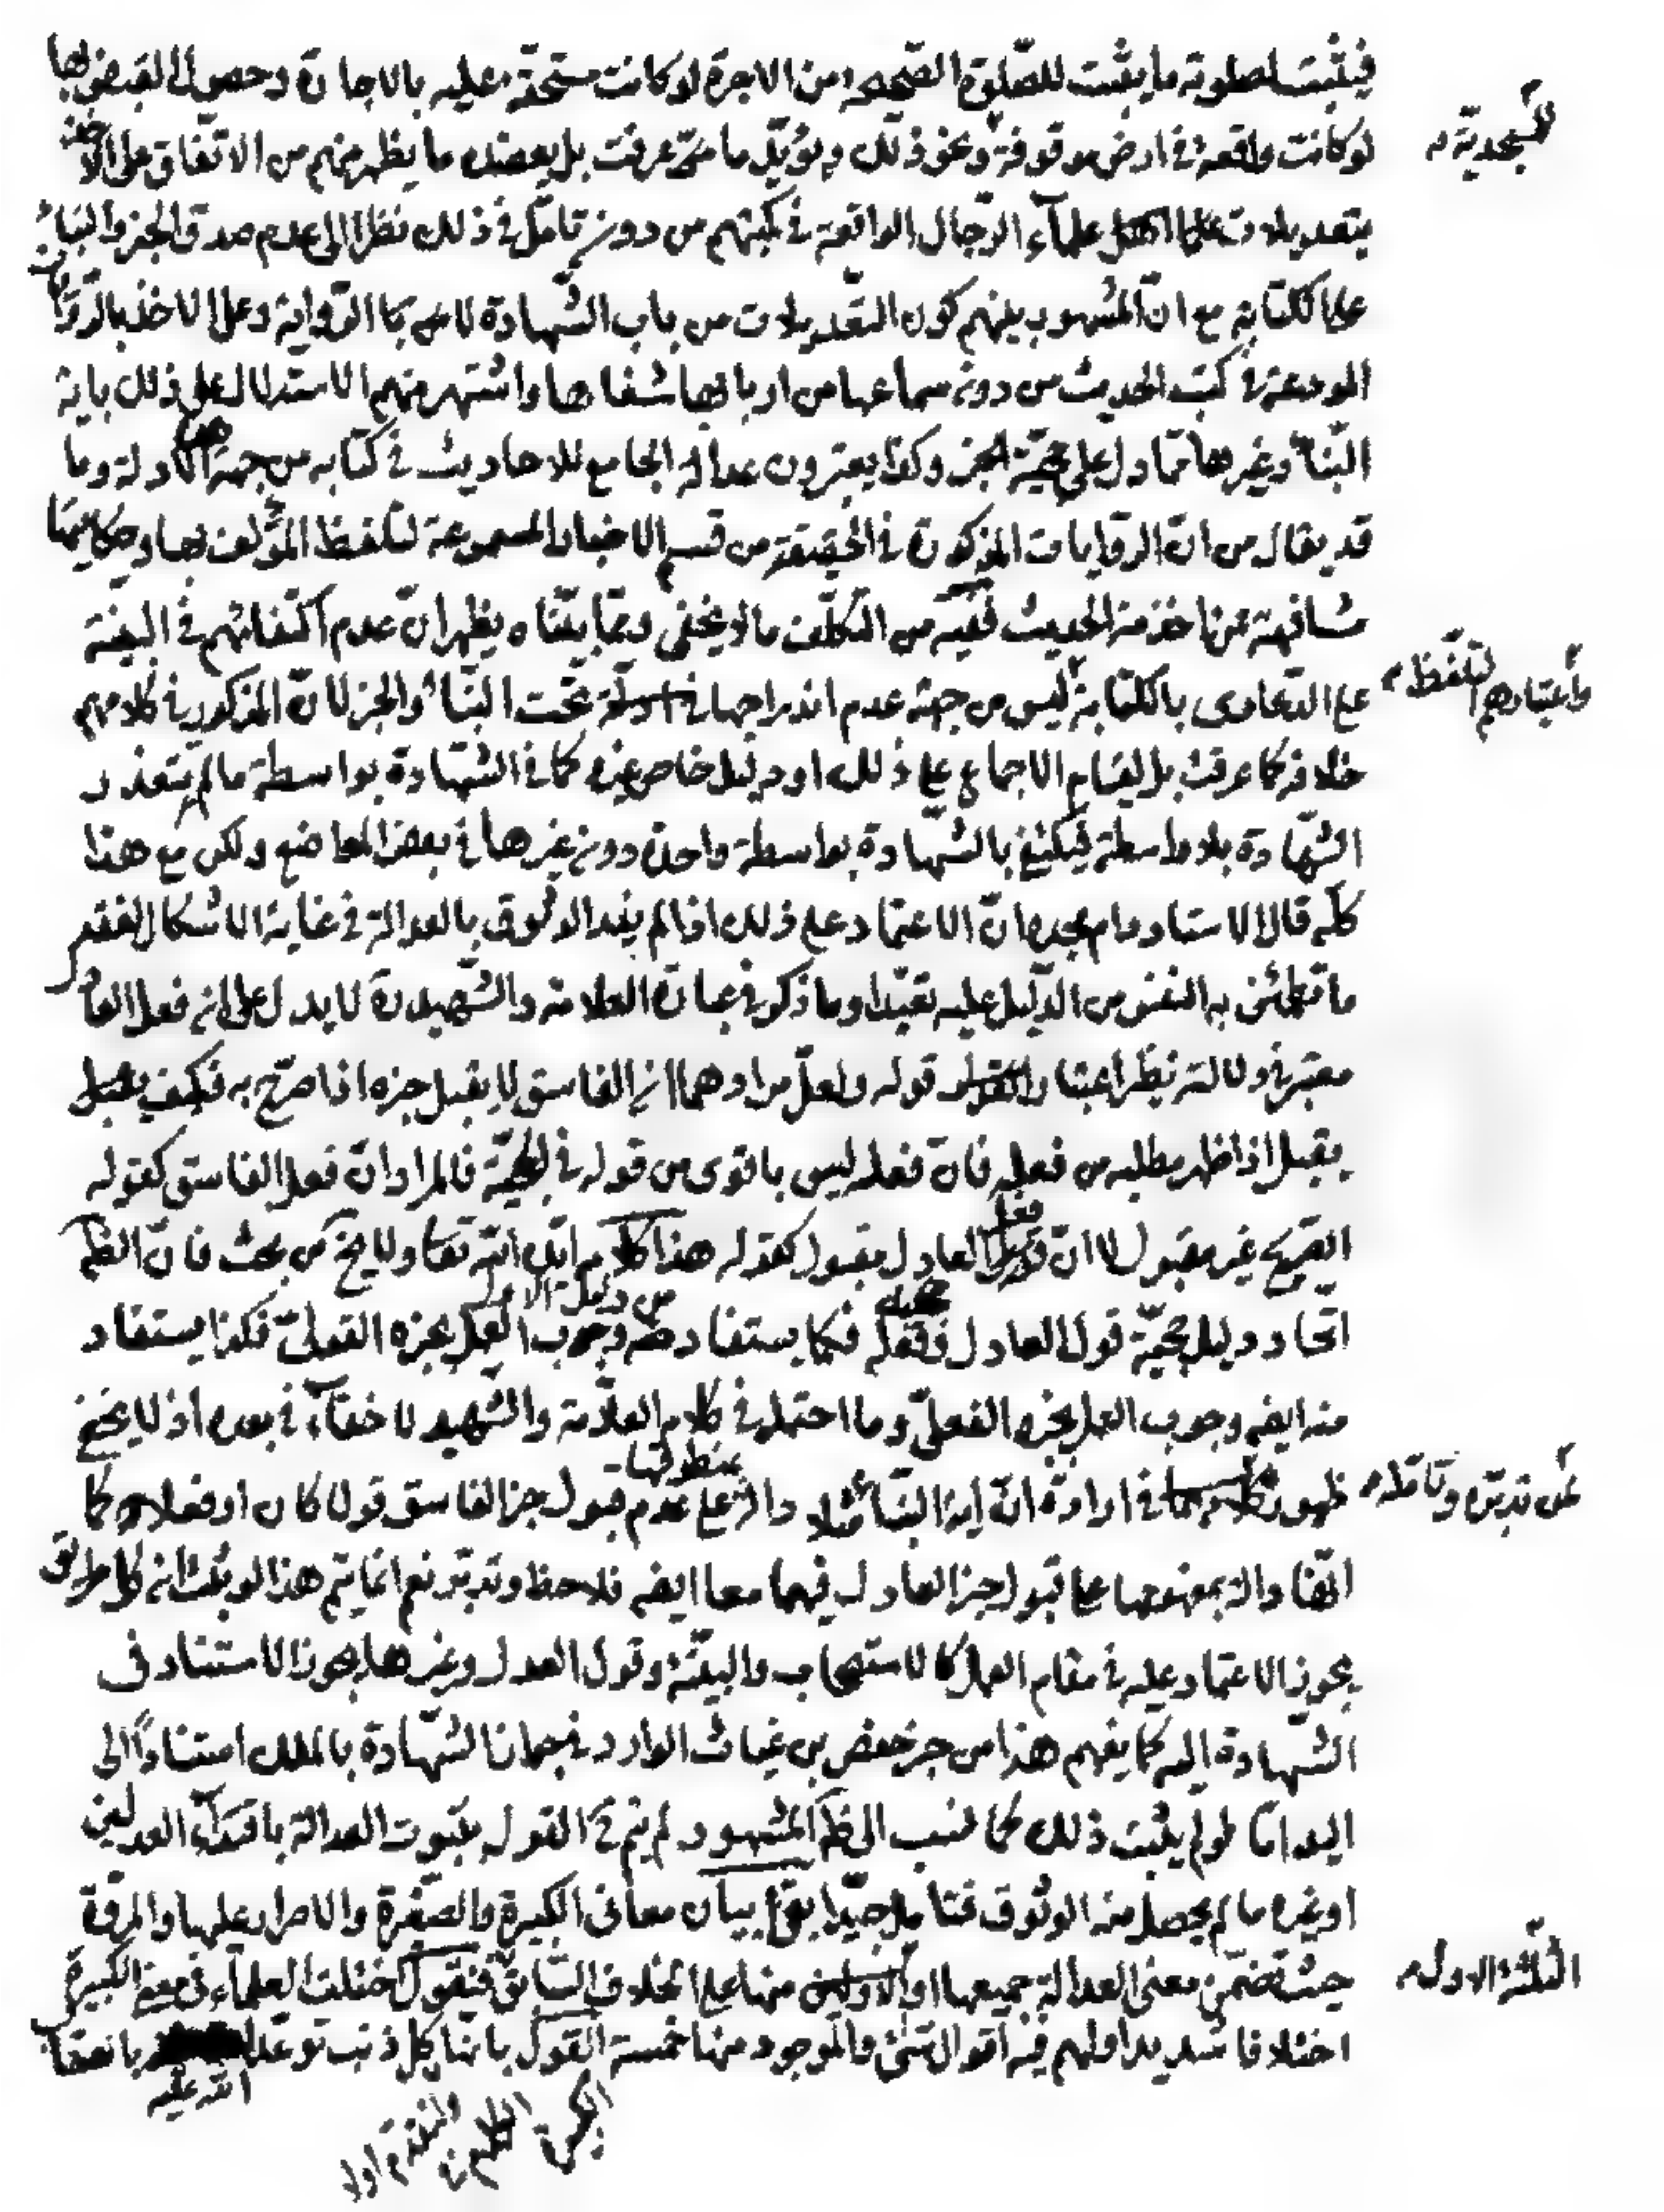 فيثبت لصلوته ما يثبت للصّلوة الصّحيحة من الاجرة لو كانت مستحقّة عليه بالاجارة وحصول القبض بها
لو كانت واقعة في ارض موقوفة ونحو ذلك ويؤيّد ما مرّ عرفت بل يعضده ما يظهر منهم من الاتّفاق على الاخذ
للمسجديّة
بتعديلات علماء الرّجال الواقعة في كتبهم من دون تامّل في ذلك نظرا الى عدم صدق الخبر والنباء
على الكتابة مع انّ المشهور بينهم كون التعديلات من باب الشّهادة لا من باب الرّواية وعلى الاخذ بالرّوايات
المودعة في كتب الحديث من دون سماعها من اربابها شفاها واشتهر منهم الاستدلال على ذلك باية
النّبأ وغيرها ممّا دل على حجيّة الخبر وكذا يعتبرون عدالة الجامع للاحاديث في كتابه من جهة هذه الادلة وما
قد يقال من انّ الرّوايات المذكورة في الحقيقة من قسم الاخبار المسموعة لتلفظ المؤلف بها وحكايتها
مشافهة لمن اخذ منه الحديث ففيه من التكلّف ما لا يخفى وممّا بيّنّاه يظهر انّ عدم اكتفائهم في البينة
على الدّعاوى بالكتابة ليس من جهة عدم اندراجها تحت النّبأ والخبر لانّ المذكور في كلامهم
واعتبارهم التلفّظ
خلافه كما عرفت بل لقيام الاجماع على ذلك او دليل خاص غيره كما في الشّهادة بواسطة ما لم يتعذر
الشّهادة بلا واسطة فيكتفى بالشّهادة بواسطة واحدة دون غيرها في بعض المواضع ولكن مع هذا
كلّه قال الاستاد دام مجده انّ الاعتماد على ذلك اذا لم يفد الوثوق بالعدالة في غاية الاشكال لفقد
ما تطمئن به النفس من الدّليل عليه تعبّدا وما ذكر في عبارة العلامة والشّهيد ره لا يدل على انه فعل العادل
معتبر في دلالته نظر اعتبار قوله ولعلّ مرادهما انّ الفاسق لا يقبل خبره اذا صرّح به فكيف
يقبل اذا ظهر مطلبه من فعله فانّ فعله ليس باقوى من قوله في الحجيّة فالمراد انّ فعل الفاسق كقوله
الصّريح غير مقبول لا انّ فعل العادل مقبول كقوله هذا كلامه ايّده اللّه تعا ولا يخ من بحث فانّ الظّ
اتّحاد دليل حجيّة قول العادل وفعله فكما يستفاد من دليل الاول وجوب العمل بخبره القولىّ فكذا يستفاد
منه ايضه وجوب العمل بخبره الفعلىّ وما احتمله في كلام العلّامة والشّهيد لا خفآء في بعده اذ لا يخفى
ظهور كلامهما في ارادة انّ اية النبأ مثلا دالة بمنطوقها على عدم قبول خبر الفاسق قولا كان او فعلا كما
على تدبّره وتامّله
انّها دالة بمفهومها على قبول خبر العادل فيهما معا ايضه فلاحظ وتدبّر نعم انّما يتم هذا لو يثبت انّه كل طريق
يجوز الاعتماد عليه في مقام العمل كالاستصحاب والبيّنة وقول العدل وغيرها يجوز الاستناد في
الشّهادة اليه كما يفهم هذا من خبر حفص بن غياث الوارد في جواز الشّهادة بالملك استناداً الى
اليد امّا لو لم يثبت ذلك كما نسب الى ظّ المشهور لم يتم في القول بثبوت العدالة باقتدآء العدلين
او غيره ما لم يحصل منه الوثوق فتامّل جيّدا بقى بيان معانى الكبيرة والصّغيرة والاصرار عليها والمروّة
حيث تضمّن معنى العدالة جميعها او منها على الخلاف السّابق فنقول اختلف العلمآء في معنى الكبيرة
الثلثة الاول
اختلافا شديدا ولهم فيه اقوال شتّى والموجود منها خمسة القول بانّها كل ذنب توعّد اللّه عليه بالعقاب